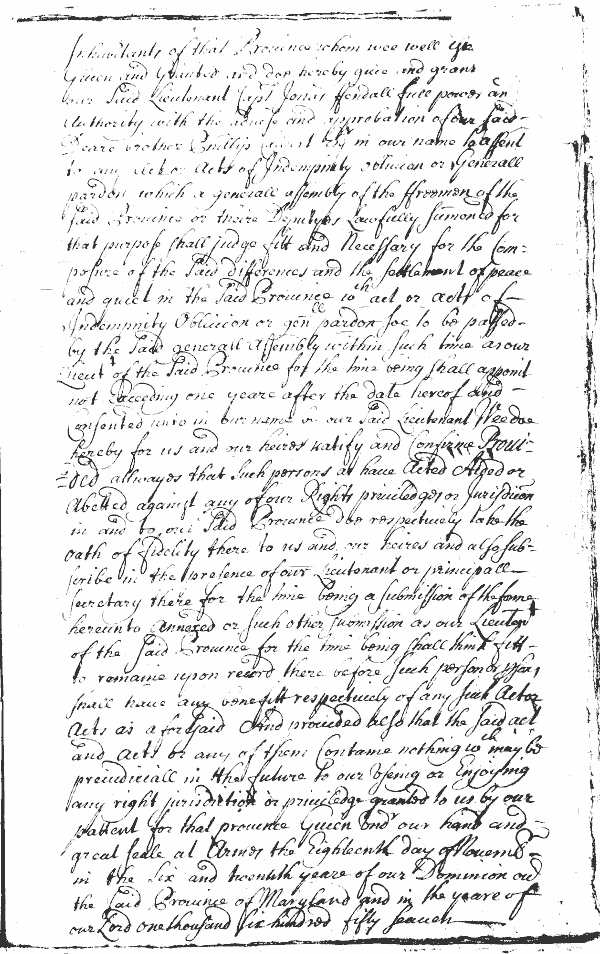 Inhabitants of that Province whom wee well
Given and Granted and doe hereby give and grant
our Said Lieutenant Capt Jonas ffendall full power an
Authority with the advise and approbation of our said
Deare brother Phillip in our name to assent
to any Act or Acts of Indempnity oblivion or Generall
pardon which a generall assembly of the ffreemen of the
said Province or theire Deputyes Lawfully sumoned for
that purpose shall judge fitt and Necessary for the Com=
posure of the said differences and the settlement of peace
and quiet in the said Province wch act or acts of
Indempnity Oblivion or genll pardon soe to be passed
by the said generall Assembly within such time as our
Lieut of the Said Province for the time being shall appoint
not Exceeding one yeare after the date hereof and
Consented unto in our name by our said Lieutenant Wee doe
hereby for us and our heires ratify and Confirme Provi=
=ded allwayes that such persons as have Acted Aided or
Abetted against any of our Rights priviledges or Jurisdicon
in and to our said Province doe respectively take the
oath of fidelity there to us and our heires and also sub=
scribe in the presence of our Lieutenant or principall
secretary there for the time being a submission of the forme
hereunto Annexed or such other submission as our Lieutent
of the said Province for the time being shall think fitt
to remaine upon record there before such person or psons
shall have any benefitt respectively of any such Act or
Acts as aforesaid And provided also that the said act
and Acts or any of them Containe nothing wch may be
prejudiciall in the future to our Useing or Enjoying
any right jurisdiction or priviledge granted to us by our
pattent for that province Given undr our hand and
great seale at Armes the Eighteenth day of Novemb=
in the Six and twentith yeare of our Dominion ovr
the said Province of Maryland and in the yeare of
our Lord one thousand six hundred fifty seaven